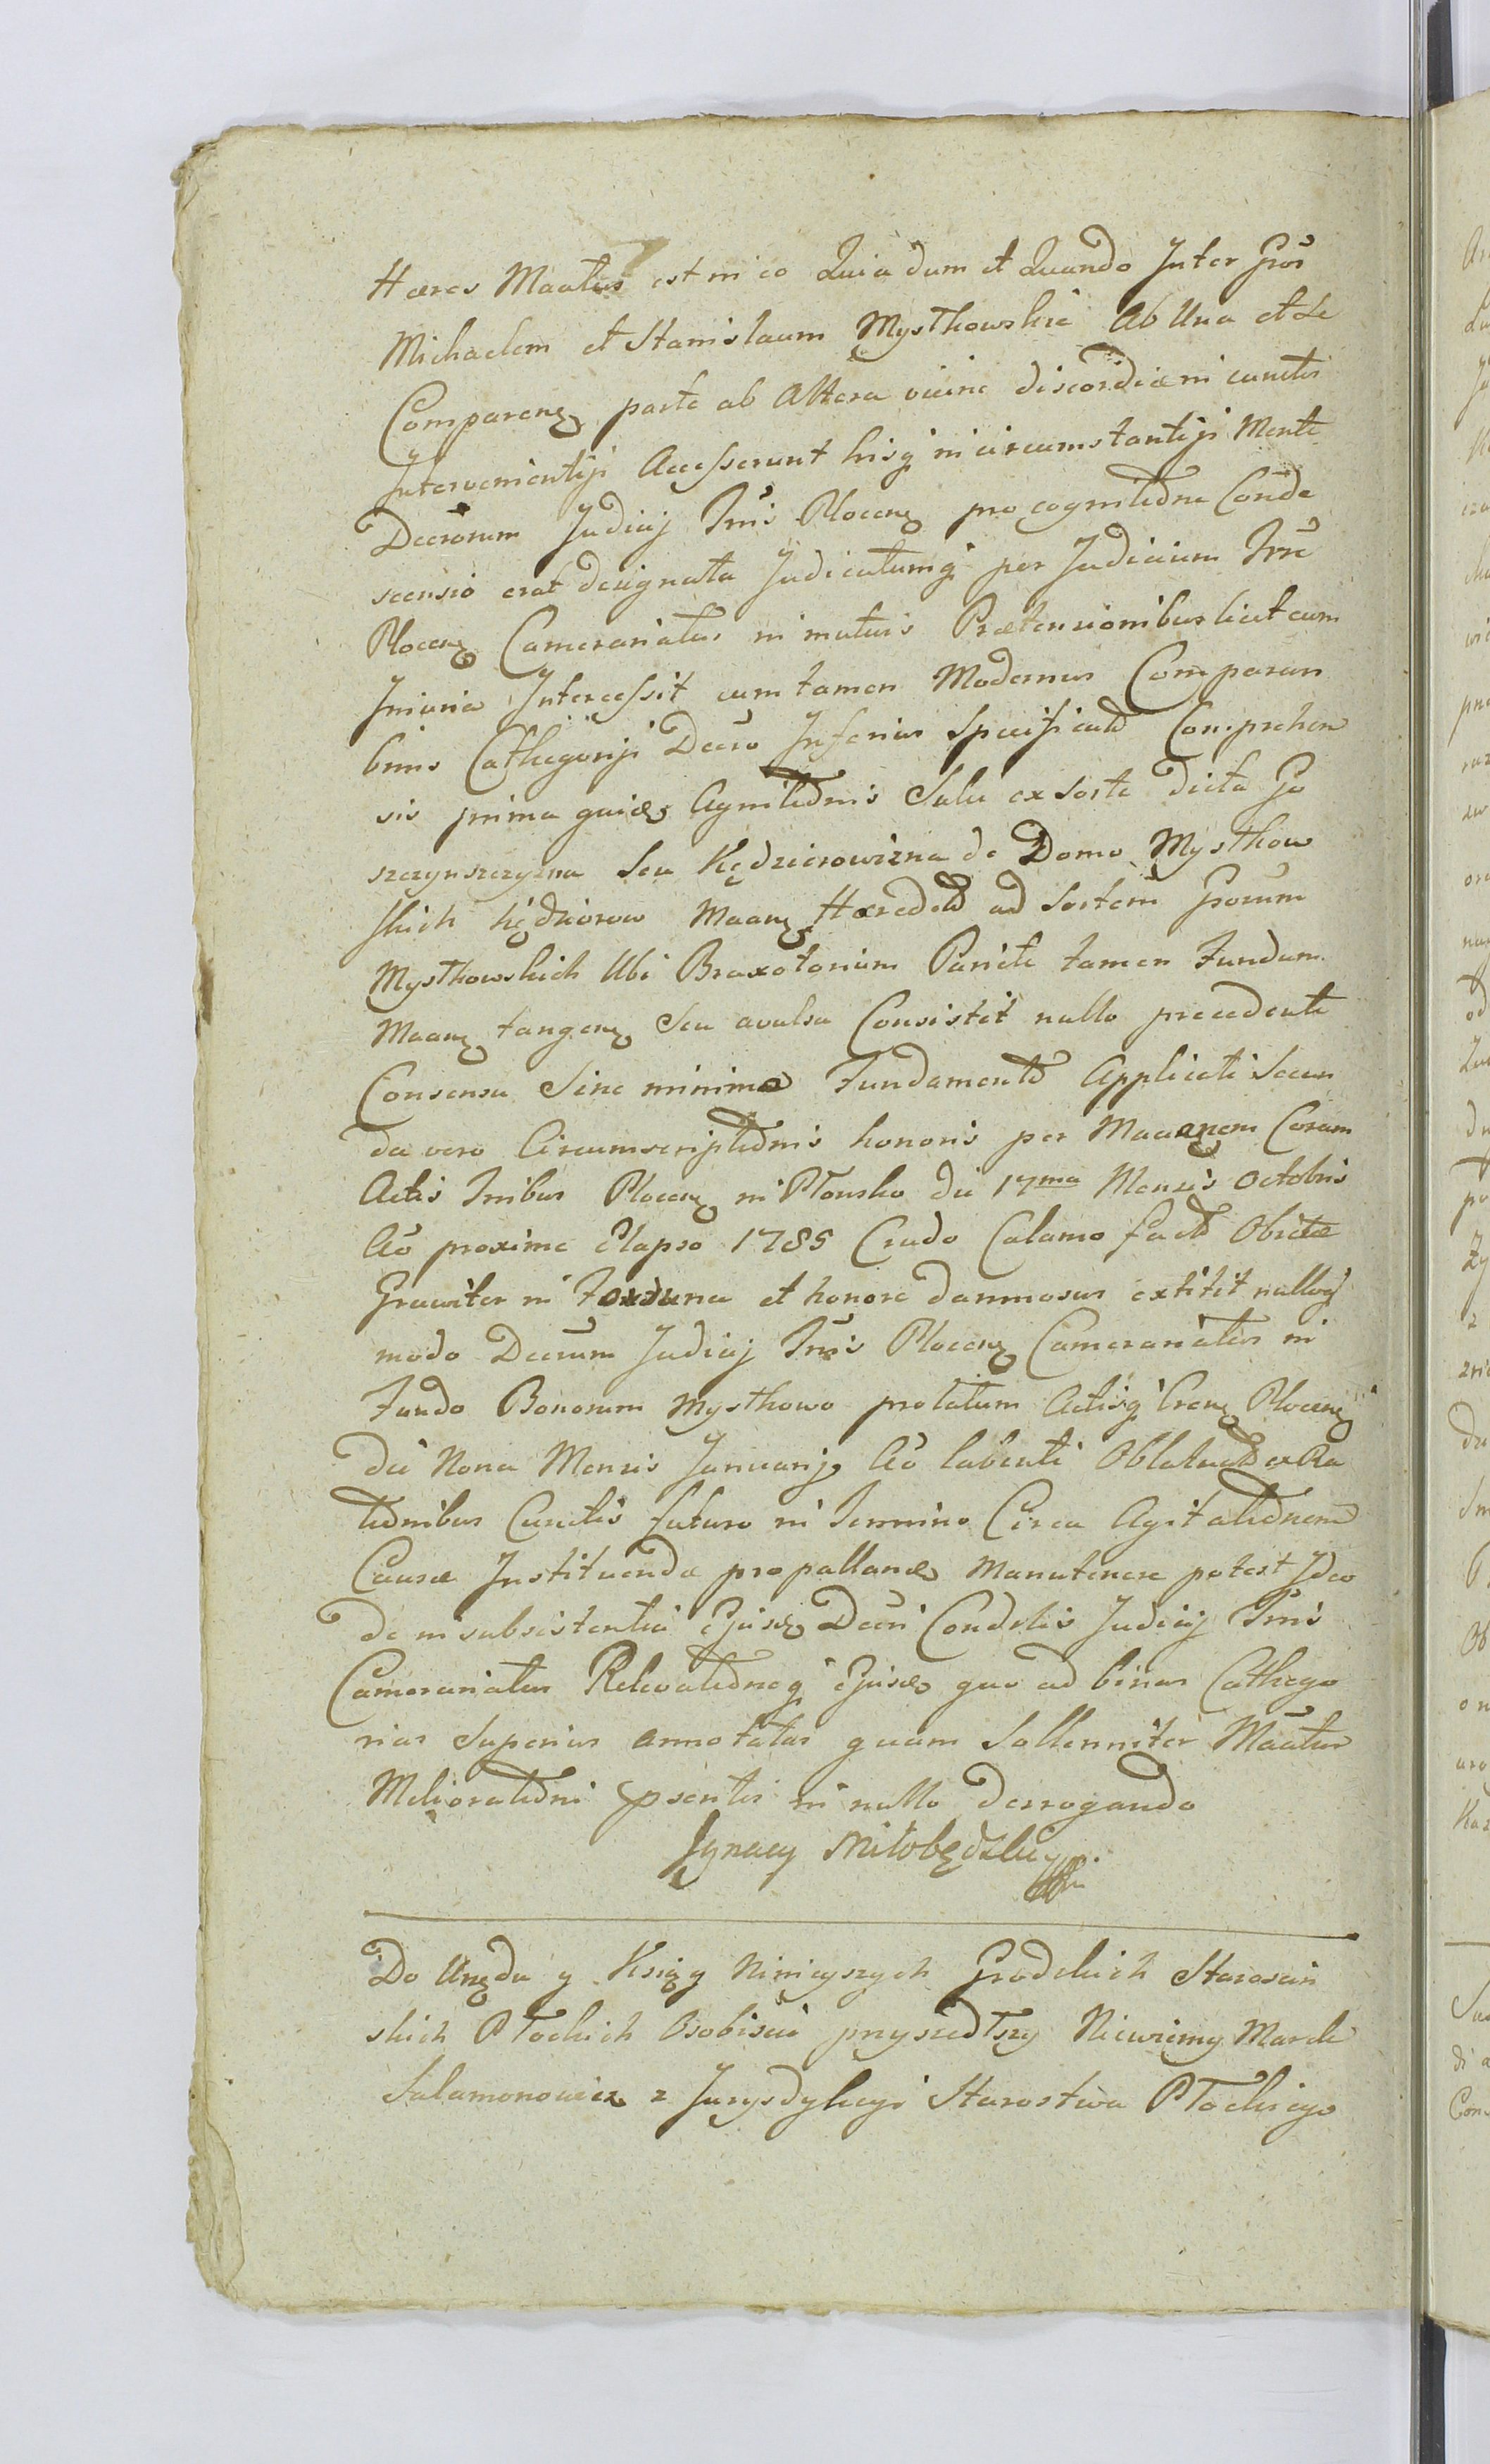 Hæres Maatus est in eo Quia dum et Quando Inter Gros
Michaelem et Stanislaum Mysthowskie Ab Una et Se
Comparenē parte ab Altera vicine discordiæ in cunctis
Intervenientiji Accesserunt hisq in circumstantiji Mente
Decrorum Judicij Trris Plocenē pro cognitione Conde
scensio erat designata Judicatumq per Judicium Trre
Plocenē Camerariatus in mutuis Prætensionibus licet cum
Iniuria Intercessit cum tamen Modernus Comparens
binis Cathegoriji Decro Inferius Specificato Comprehen
sis prima quidē Agnitionis Salu ex Sorte dicta Go
szczynszczyzna Seu Kędzierowizna de Domo Mysthow
skich Kędziorow Maanē Hæredeto ad Sortem Grorum
Mysthowskich Ubi Braxatorium Parieti tamen Fundum
Maanē tangenē Seu avulsa Consistit nullo precedente
Consensu Sine minimo Fundamento Applicati Secun
da vero Circumscriptionis honoris per Maanem Coram
Actis Trribus Plocenē in Płonsko die 17ma Mensis Octobris
Ao proxime Elapso 1785 Crudo Calamo facto Obictæ
Graviter in Fortuna et honore damnosus extitit nulloq
modo Decrum Judicij Trris Plocenē Camerariatus in
Fundo Bonorum Mysthowo prolatum Actisq Crenē Plocenē
die Nona Mensis Januarij Ao labenti Oblatum ex Ra
tionibus Cunctis futuro in Termino Circa Agitationem
Causæ Instituendæ propallandē Manutenere potest Ideo
de insubsistentia Ejusdē Decri Condelis Judicij Trris
Camerariatus Relevationeq Ejusdē quo ad binas Cathego
rias Superius annotatas quam Sollenniter Maatur
Melioratione psentis in nullo derrogando
Ignacy Miłobędzki
Do Urzędu y Ksiąg Ninieyszych Grodzkich Starościn
skich Płockich Osobiście przyszedłszy Niewierny Marek
Salamonowicz z Jurysdykcyi Starostwa Płockiego